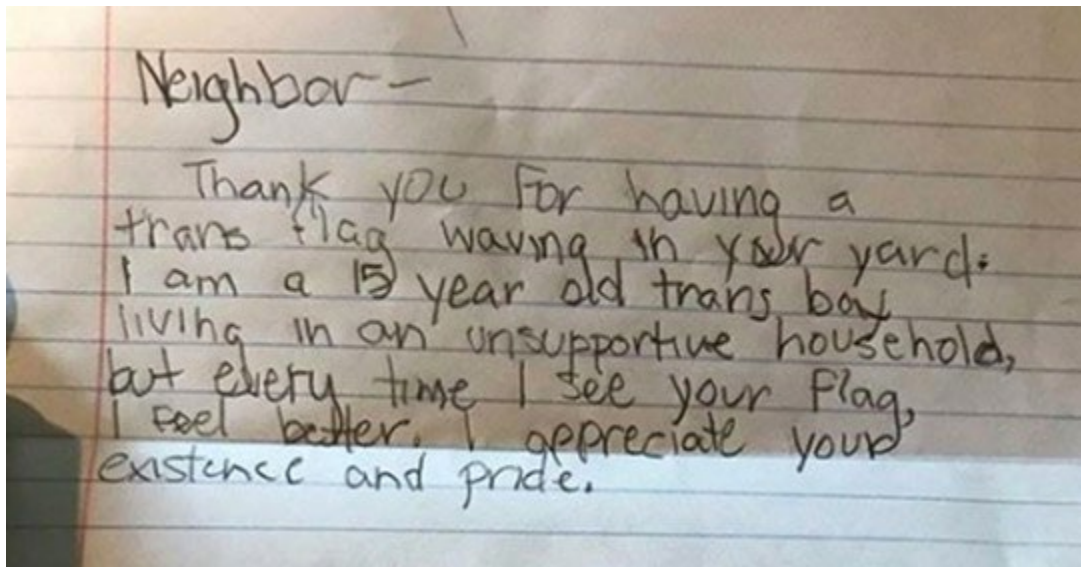 Neighbor-
Thank you For having a
trans flag waving in your yard.
I am a 15 year old trans boy
living in an unsupportive household,
but every time I see your Flag,
I Feel better. I appreciate your
existence and pride.